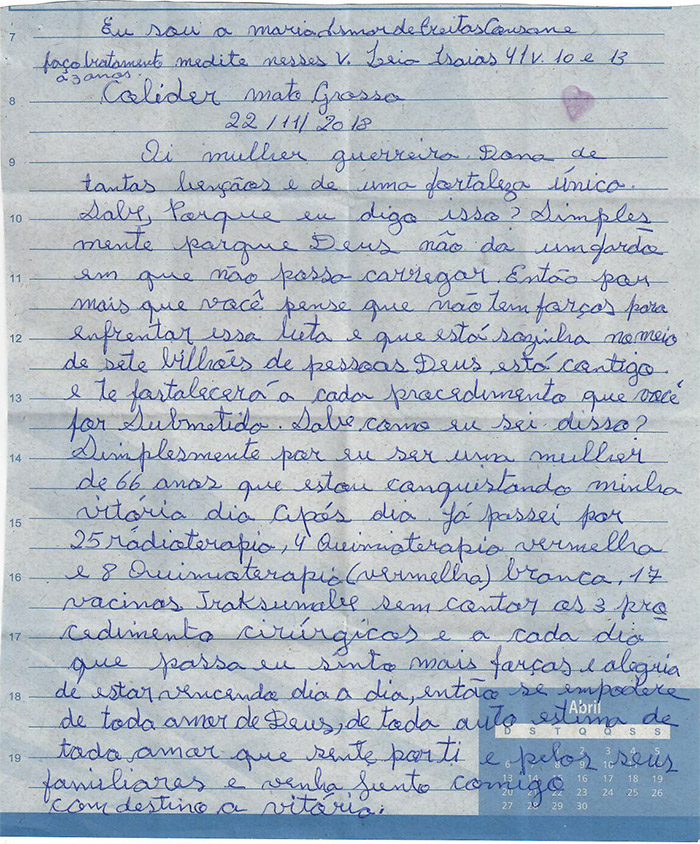 7 Eu sou a maria Ismar de Freitas Consone
faço tratamento medite nesses V. Leia Isaias 41 V. 10 e 13
a 3 anos.
8 Colider mato Grosso
22/11/2018
9 Oi mulher guerreira. Dona de
tantas bençãos e de uma fortaleza única.
10 Sabe, Porque eu digo isso? Simples
mente porque Deus não da um fardo
11 em que não possa carregar. Então por
mais que você pense que não tem forças para
12 enfrentar essa luta e que está sozinha no meio
de sete bilhões de pessoas Deus está contigo.
13 e te fortalecerá a cada procedimento que você
for Submetida. Sabe como eu sei disso?
14 Simplesmente por eu ser uma mulher
de 66 anos que estou conquistando minha
15 vitória dia após dia. Já passei por
25 rádioterapia, 4 Quimioterapia vermelha
16 e 8 Quimioterapia (vermelha) branca, 17
vacinas Traksumabe sem contar os 3 pro
17 cedimento cirúrgicos e a cada dia
que passa eu sinto mais forças e alegria
18 de estar vencendo dia a dia, então se empodere
de toda amor de Deus, de toda auto estima de
19 todo amor que sente por ti e pelos seus
familiares e venha junto comigo
com destino a vitória.
Abril
D S T Q Q S S
1 2 3 4 5
6 7 8 9 10 11 12
13 14 15 16 17 18 19
20 21 22 23 24 25 26
27 28 29 30